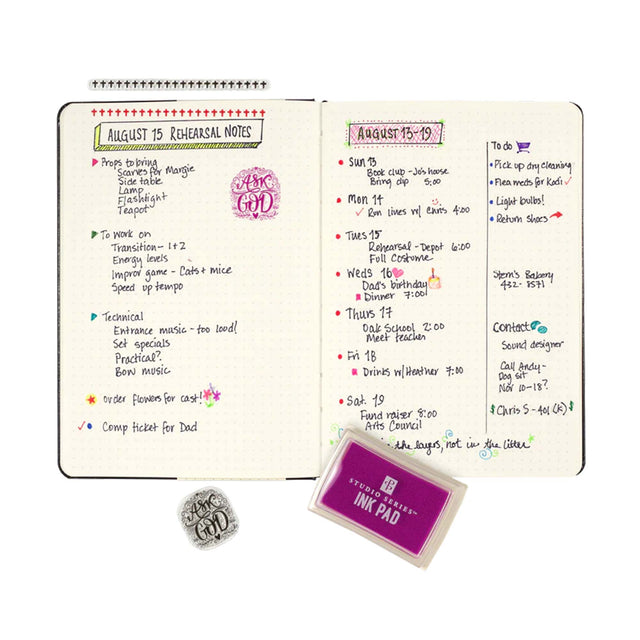 AUGUST 15 REHEARSAL NOTES
Props to bring
Scarves for Margie
Side table
Lamp
Flashlight
Teapot
ASK
GOD
To work on
Transition - 1 + 2
Energy levels
Improv game - Cats + mice
Speed up tempo
Technical
Entrance music - too loud!
Set specials
Practical?
Bow music
order flowers for cast!
Comp ticket for Dad
AUGUST 13-19
Sun 13
Book club - Jo's house
Bring dip 5:00
Mon 14
Run lines w/ Chris 4:00
Tues 15
Rehearsal - Depot 6:00
Full Costume
Weds 16
Dad's birthday
Dinner 7:00
Thurs 17
Oak School 2:00
Meet teacher
Fri 18
Drinks w/Heather 7:00
Sat. 19
Fund raiser 8:00
Arts Council
in the layers, not in the litter
To do
Pick up dry cleaning
Flea meds for Kodi
Light bulbs!
Return shoes
Stern's Bakery
432-8571
Contact
Sound designer
Call Andy -
Dog sit
Nov 10-18?
$ Chris S - 401 (K) $
ASK
GOD
STUDIO SERIES™
INK PAD